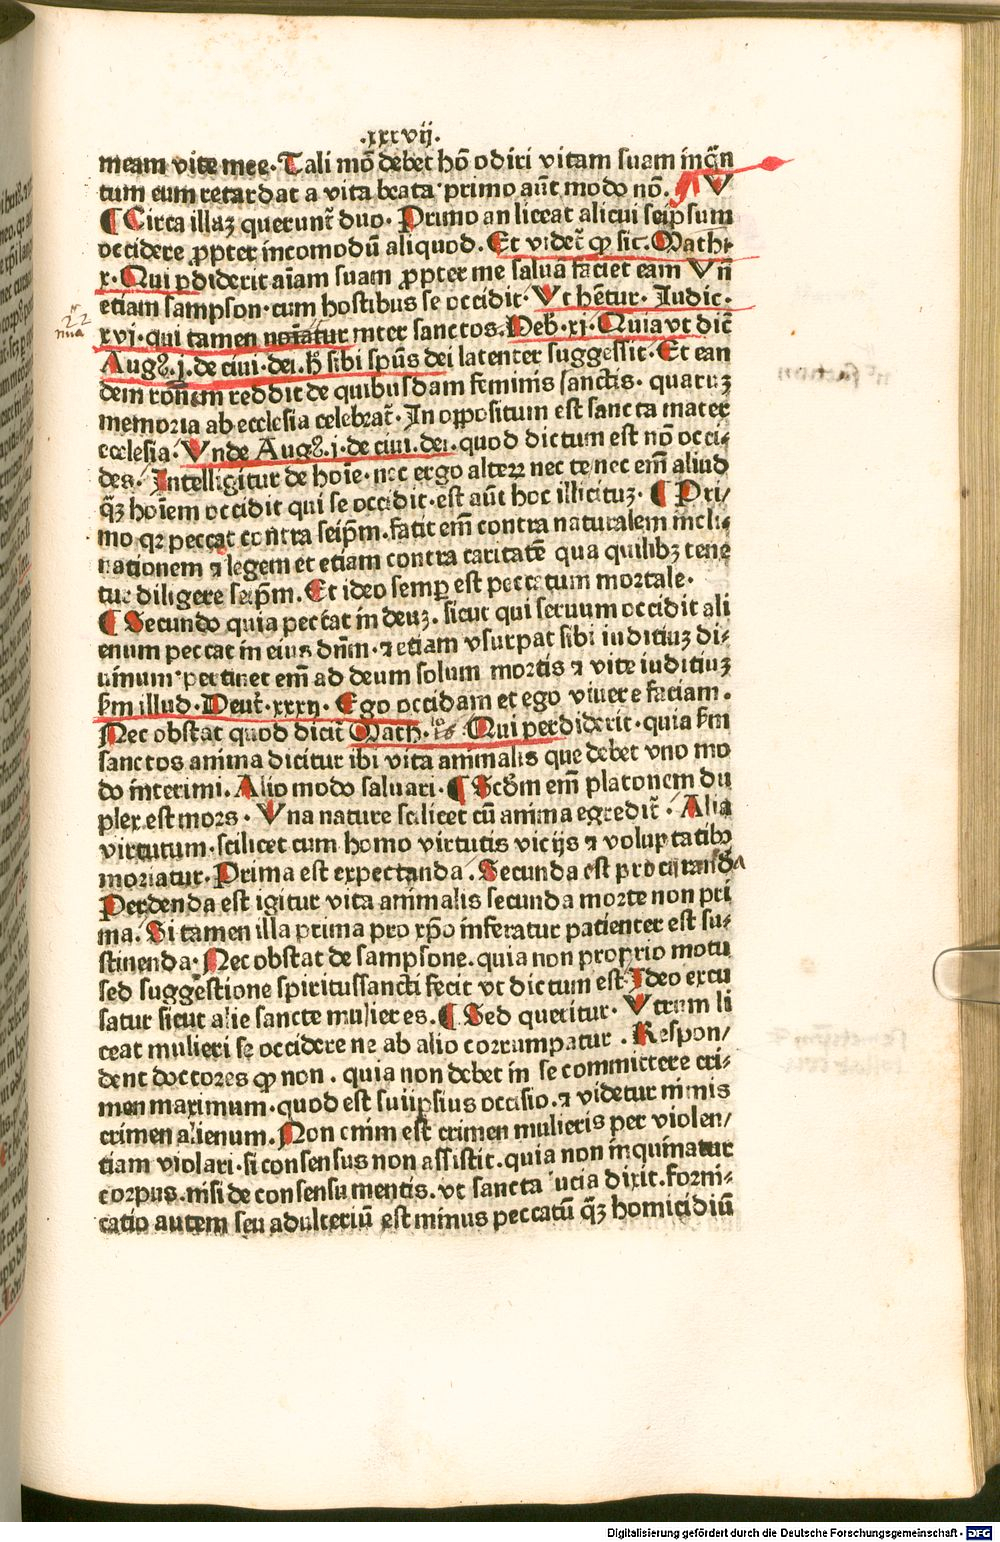 .xxxvij.
meam vite mee. Tali mō debet hō odiri vitam suam inq̄n
tum eum retardat a vita beata. primo aūt modo nō. V
¶ Circa illaꝫ querunt̄ duo. Primo an liceat alicui seipsum
occidere ꝓpter incomodū aliquod. Et videt̄ ꝙ sic. Math.
x. Qui ꝑdiderit aīam suam ꝓpter me saluā faciet eam Vn̄
etiam sampson cum hostibus se occidit. Vt hētur. Iudic.
xvi. qui tamen noīatur inter sanctos. Heb. xi. Quia vt dic̄
Augꝰ. j. de ciui. dei. h̄ sibi spūs dei latenter suggessit. Et ean
dem rōnem reddit de quibusdam feminis sanctis. quaruꝫ
memoria ab ecclesia celebrat̄. In oppositum est sancta mater
ecclesia. Vnde Augꝰ. j. de ciui. dei. quod dictum est nō occi⸗
des. Intelligitur de hoīe. nec ergo alterꝝ nec te nec em̄ aliud
q̄ꝫ hoīem occidit qui se occidit. est aūt hoc illicituꝫ. ¶ Pri/
mo qꝛ peccat contra seip̄m. facit em̄ contra naturalem incli⸗
nationem ⁊ legem et etiam contra caritatē qua quilibꝫ tene
tur diligere seip̄m. Et ideo semꝑ est peccatum mortale.
¶ Secundo quia peccat in deuꝫ. sicut qui seruum occidit ali
enum peccat in eius dn̄m. ⁊ etiam vsurpat sibi iuditiuꝫ di⸗
uinum. pertinet em̄ ad deum solum mortis ⁊ vite iuditiuꝫ
ẜm illud. Deut̄. xxxij. Ego occidam et ego viuere faciam.
Nec obstat quod dicit̄ Math. 10 16 Qui perdiderit. quia ẜm
sanctos anima dicitur ibi vita animalis que debet vno mo
do interimi. Alio modo saluari. ¶ Scd̄m em̄ platonem du
plex est mors. Vna nature scilicet cū anima egredit̄. Alia
virtutum. scilicet cum homo virtutis vicijs ⁊ voluptatibꝰ
moriatur. Prima est expectanda. Secunda est procuranda
Perdenda est igitur vita animalis secunda morte non pri
ma. Si tamen illa prima pro xp̄o inferatur patienter est su⸗
stinenda. Nec obstat de sampsone. quia non proprio motu
sed suggestione spiritussancti fecit vt dictum est Ideo excu
satur sicut alie sancte mulieres. ¶ Sed queritur. Vtrum li
ceat mulieri se occidere ne ab alio corrumpatur. Respon/
dent doctores ꝙ non. quia non debet in se committere cri⸗
men maximum. quod est suiipsius occisio. ⁊ videtur nimis
crimen alienum. Non enim est crimen mulieris per violen/
tiam violari. si consensus non assistit. quia non inquinatur
corpus. nisi de consensu mentis. vt sancta ucia dixit. forni⸗
catio autem seu adulteriū est minus peccatū q̄ꝫ homicidiū
Digitalisierung gefördert durch die Deutsche Forschungsgemeinschaft - DFG